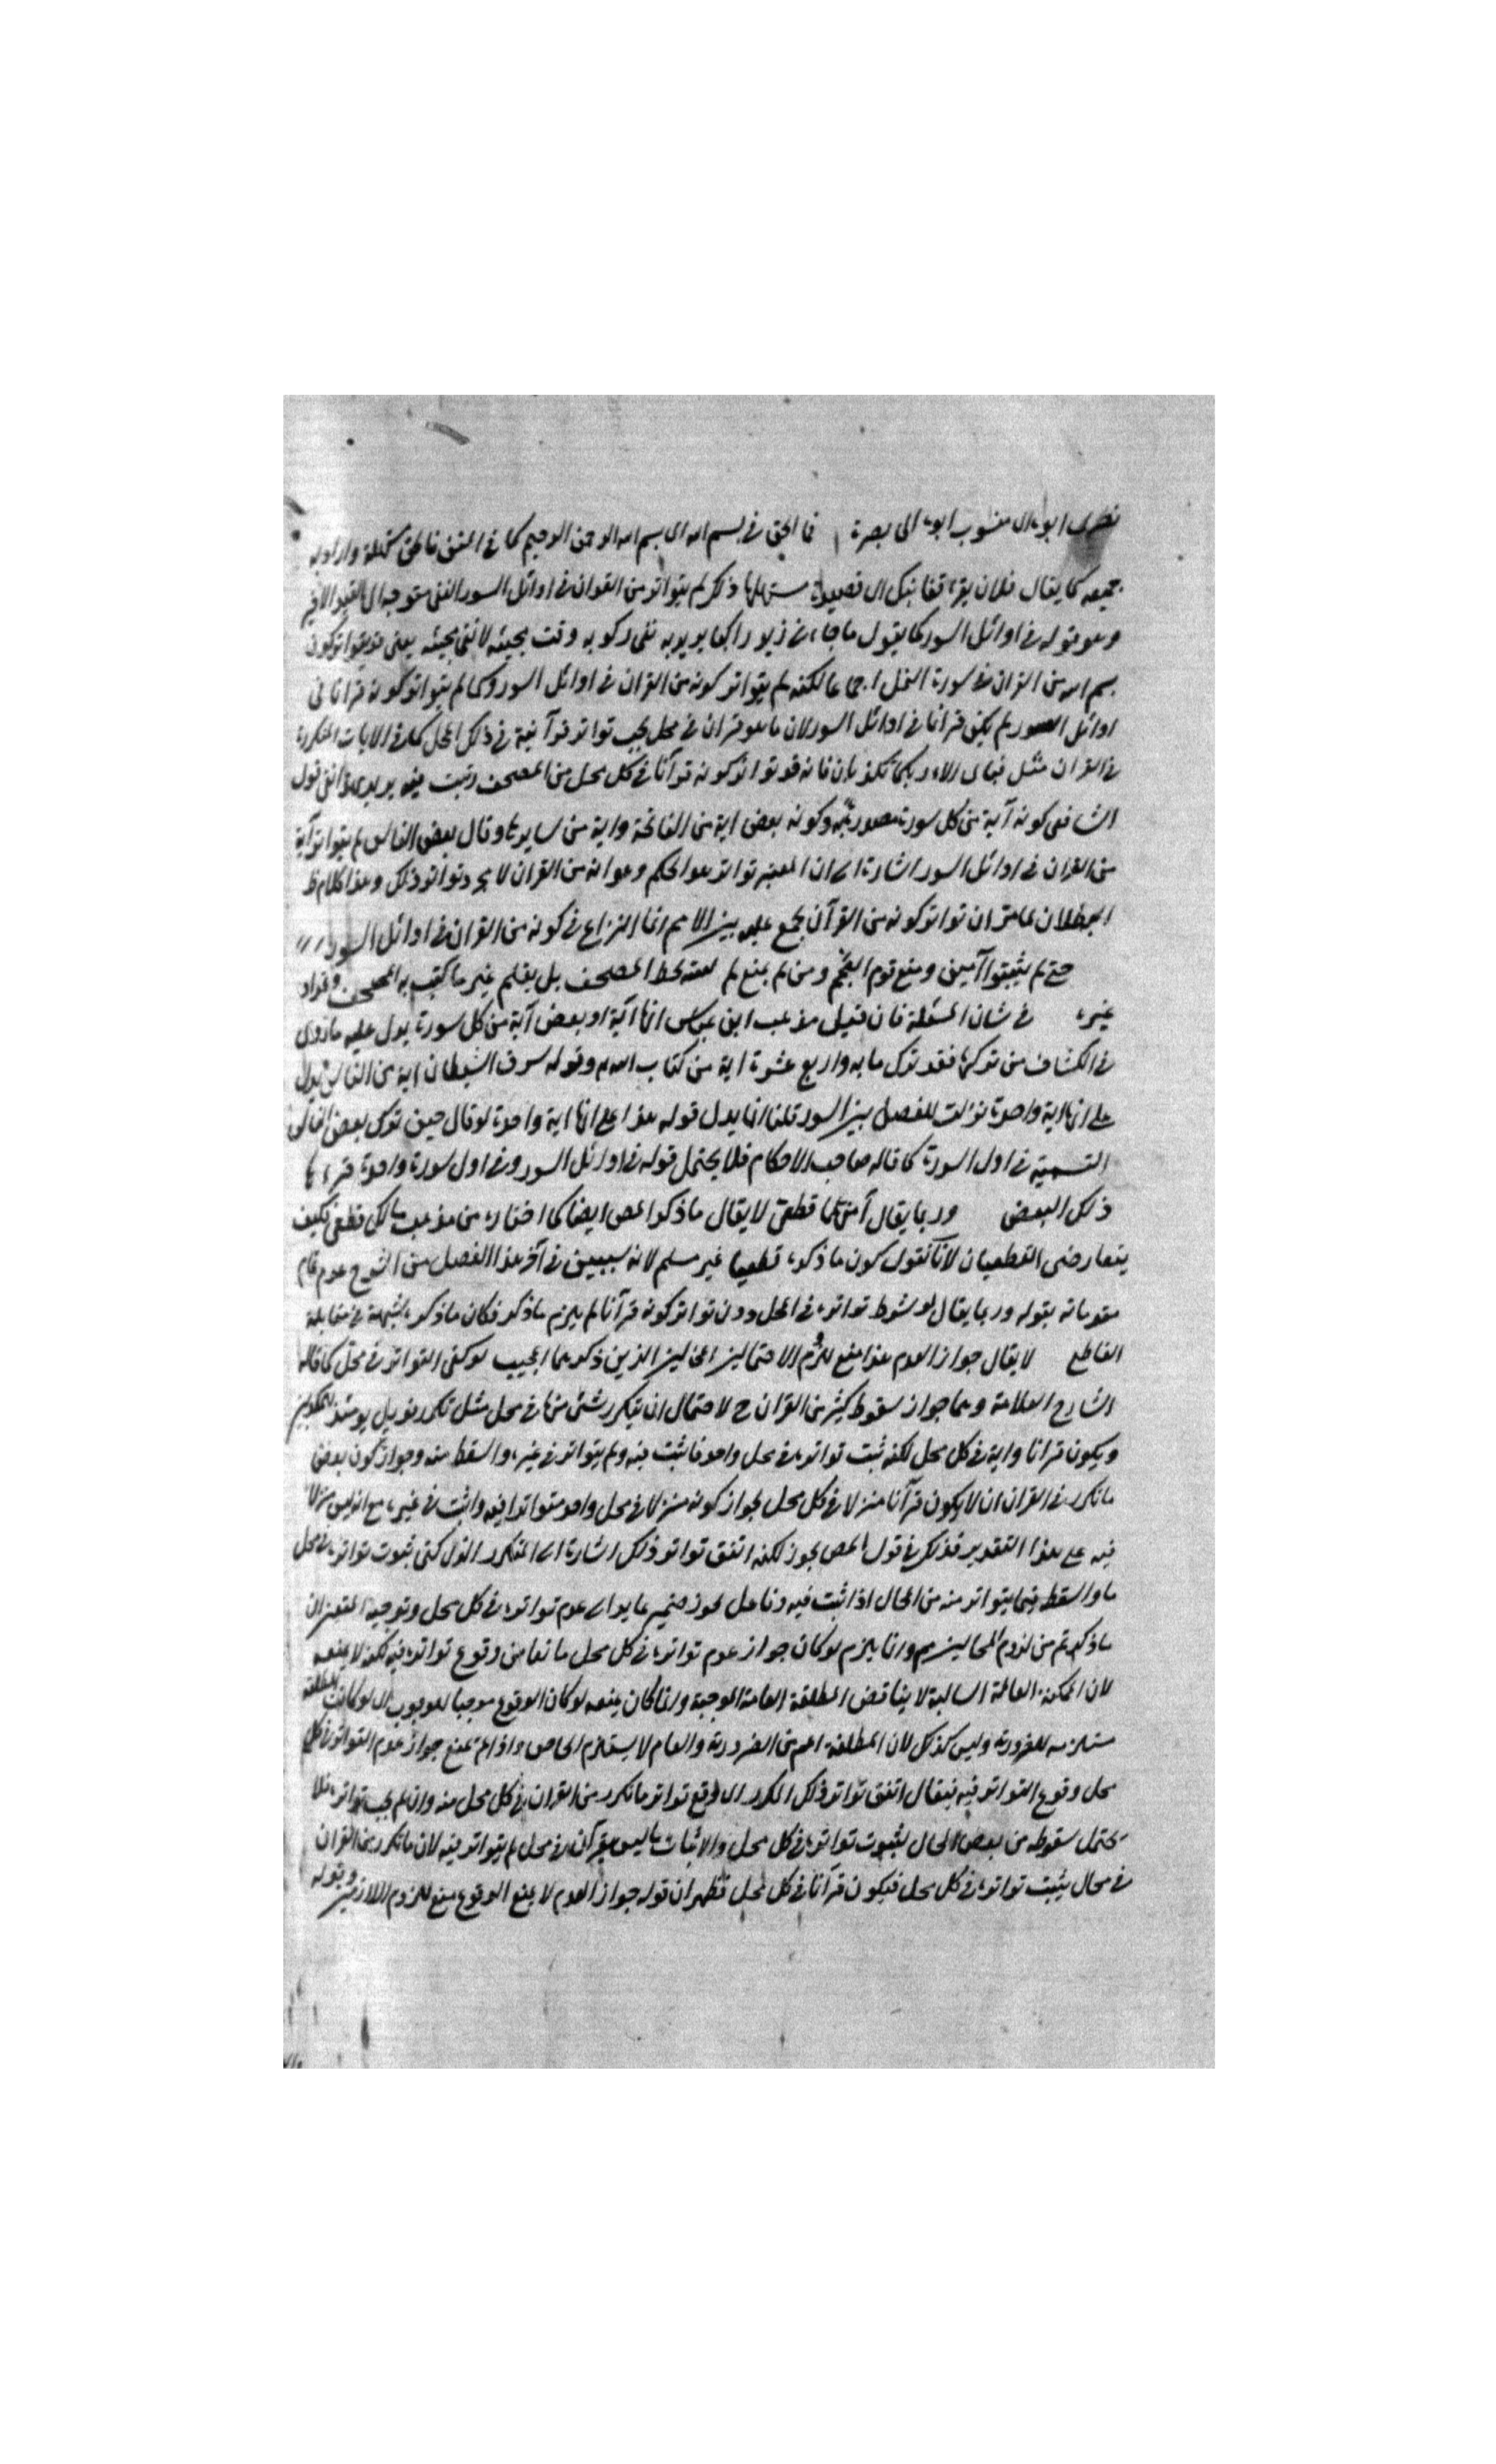 بصرى ابوه اى منسوب ابوه الى بصرة فما الحق فى بسم الله اى بسم الله الرحمن الرحيم كما فى المتن فاطلق واراد به
جميعه كما يقال فلان يقرأ قفا نبك اى قصيدة مستهلها ذلك لم يتواتر من القران فى اوائل السور النفى متوجه الى القيد الاخير
وهو قوله فى اوائل السور كما يقول ما جاءنى زيد راكبا يريد به نفى ركوبه وقت مجيئه لا نفى مجيئه يعنى قد يتواتر كون
بسم الله من القران فى سورة النمل اجماعا لكنه لم يتواتر كونه من القران فى اوائل السور وكما لم يتواتر كونه قرانا فى
اوائل السور لم يكن قرانا فى اوائل السور لان ما هو قران فى محل يجب تواتر قرآنية فى ذلك المحل كما فى الايات المكررة
فى القران مثل فباى الاء ربكما تكذبان فانه قد تواتر كونه قرآنا فى كل محل من المصحف رتبت فيه يريد قول
الشافعى كونه آية من كل سورة وكونه بعض اية من الفاتحة واية من سايرها وقال بعض الناس لم يتواتر آية
من القران فى اوائل السور اشارة الى ان المعتبر تواتر هو الحكم وهو انه من القران لا مجرد تواتر ذلك وهذا كلام ظ
البطلان لما مر ان تواتر كونه من القرآن مجمع عليه بين الامم انما النزاع فى كونه من القران فى اوائل السور
حتى لم يثبتوا آمين ومنع قوم العجم ومن لم يمنع لم بخط المصحف بل بقلم غير ما كتب به المصحف
غيره فى شان المسئلة فان قيل مذهب ابن عباس انها آية او بعض آية من كل سورة يدل عليه ما روى
فى الكشاف من تركها فقد ترك مايه واربع عشرة اية من كتاب الله وقوله سرق الشيطان اية من الناس يدل
على انها اية واحدة نزلت للفصل بين السور قلنا انما يدل قوله هذا على انها اية واحدة لو قال حين ترك بعض الناس
التسمية فى اول السورة كما قاله صاحب الاحكام فلا يحتمل قوله فى اوائل السور وفى اول سورة واحدة
ذلك البعض وربما يقال قطعى لا يقال ما ذكر المص ايضا كما اختاره من مذهب مالك قطعى فكيف
يتعارض القطعيان لانا نقول كون ما ذكره قطعيا غير مسلم لانه سيبين فى آخر هذا الفصل من الشرح عدم تمام
مقدماته بقوله وربما يقال لو شرط تواتره فى المحل دون تواتر كونه قرآنا لم يلزم ما ذكر فكان ما ذكره شبهة فى مقابلة
القاطع لا يقال جواز العدم هذا منع لزوم الاحتمالين الذين ذكرهما المجيب لو كفى التواتر فى محل كما قاله
الشارح العلامة وهما جواز سقوط كثير من القران ح لاحتمال ان يتكرر شئ منها فى محل مثل تكرر فويل يومئذ للمكذبين
ويكون قرانا واية فى كل محل لكنه ثبت تواتره فى محل واحد فاثبت فيه ولم يتواتر فى غيره واسقط منه وجواز كون بعض
ما تكرر فى القران ان لا يكون قرآنا منزلا فى كل محل لجواز كونه منزلا فى محل واحد متواترا فيه واثبت فى غيره مع انه ليس منزلا
فيه على هذا التقدير فذلك فى قول المص يجوز لكنه اتفق تواتر ذلك اشارة الى المتكرر الذى كفى ثبوت تواتره فى محل
ما واسقط فيما يتواتر منه من المحال اذا ثبت فيه وفاعل يجوز ضمير عايد الى عدم تواتره فى كل محل وتوجيه المتعين ان
ما ذكرتم من لزوم المحالين م وانما يلزم لو كان جواز عدم تواتره فى كل محل مانعا من وقوع تواتره فيه لكنه لا يمنعه
لان الممكنة العامة السالبة لا يناقض المطلقة العامة الموجبة وانما كان يمنعه لو كان الوقوع موجبا للوجوب اى لو كانت المطلقة
مستلزمه للضرورية وليس كذلك لان المطلقة اعم من الضرورية والعام لا يستلزم الخاص واذا لم يمنع جواز عدم التواتر فى كل
محل وقوع التواتر فيه فيقال اتفق تواتر ذلك المكرر اى وقع تواتر ما تكرر من القران فى كل محل منه وان لم يجب تواتره فلا
يحتمل سقوطه من بعض المحال لثبوت تواتره فى كل محل ولا اثبات ما ليس بقرآن فى محل لم يتواتر فيه لان ما تكرر من القران
فى محال يثبت تواتره فى كل محل فيكون قرآنا فى كل محل فظهر ان قوله جواز العدم لا يمنع الوقوع منع للزوم اللازمين وقوله